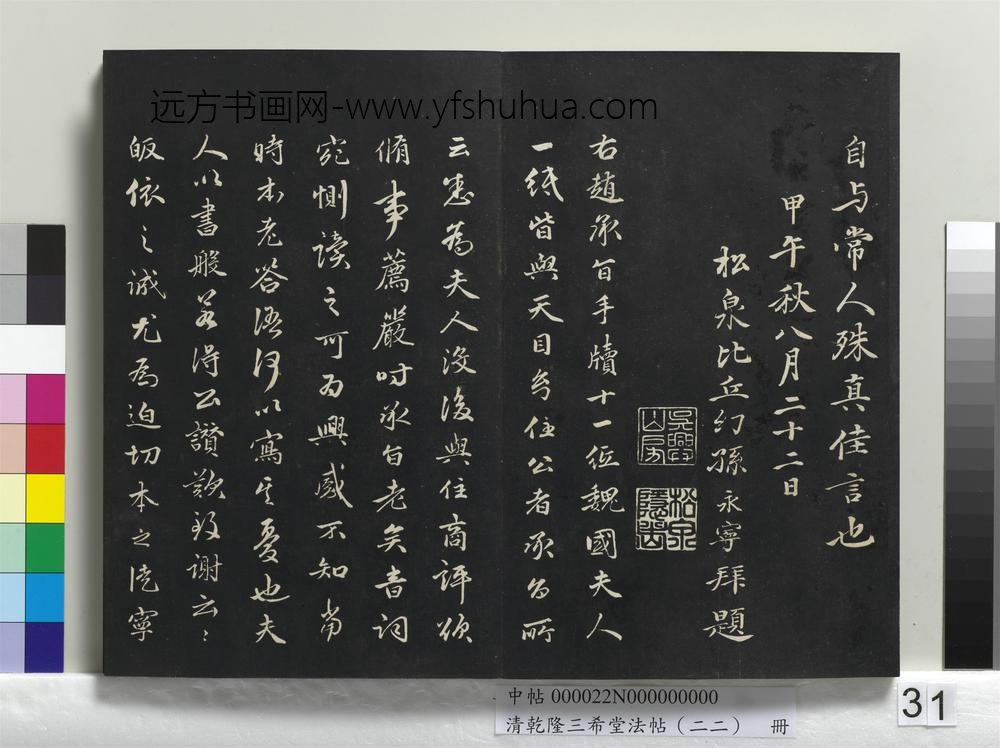 远方书画网-www.yfshuhua.com
自与常人殊真佳言也
甲午秋八月二十二日
松泉比丘幻孫永寧拜題
吳興山房
松泉隱岩
右趙承旨手牘十一徑魏國夫人
一紙皆與天目幻住公者承旨所
云悉為夫人没後與住商評欲
脩事薦嚴時承旨老矣音詞
宛惻讀之可為興感不知當
時本老答語何以寫其憂也夫
人以書般若得公讚歎致謝云〻
皈依之誠尤為迫切本之後寧
中帖 000022N000000000
清乾隆三希堂法帖（二二） 冊
31